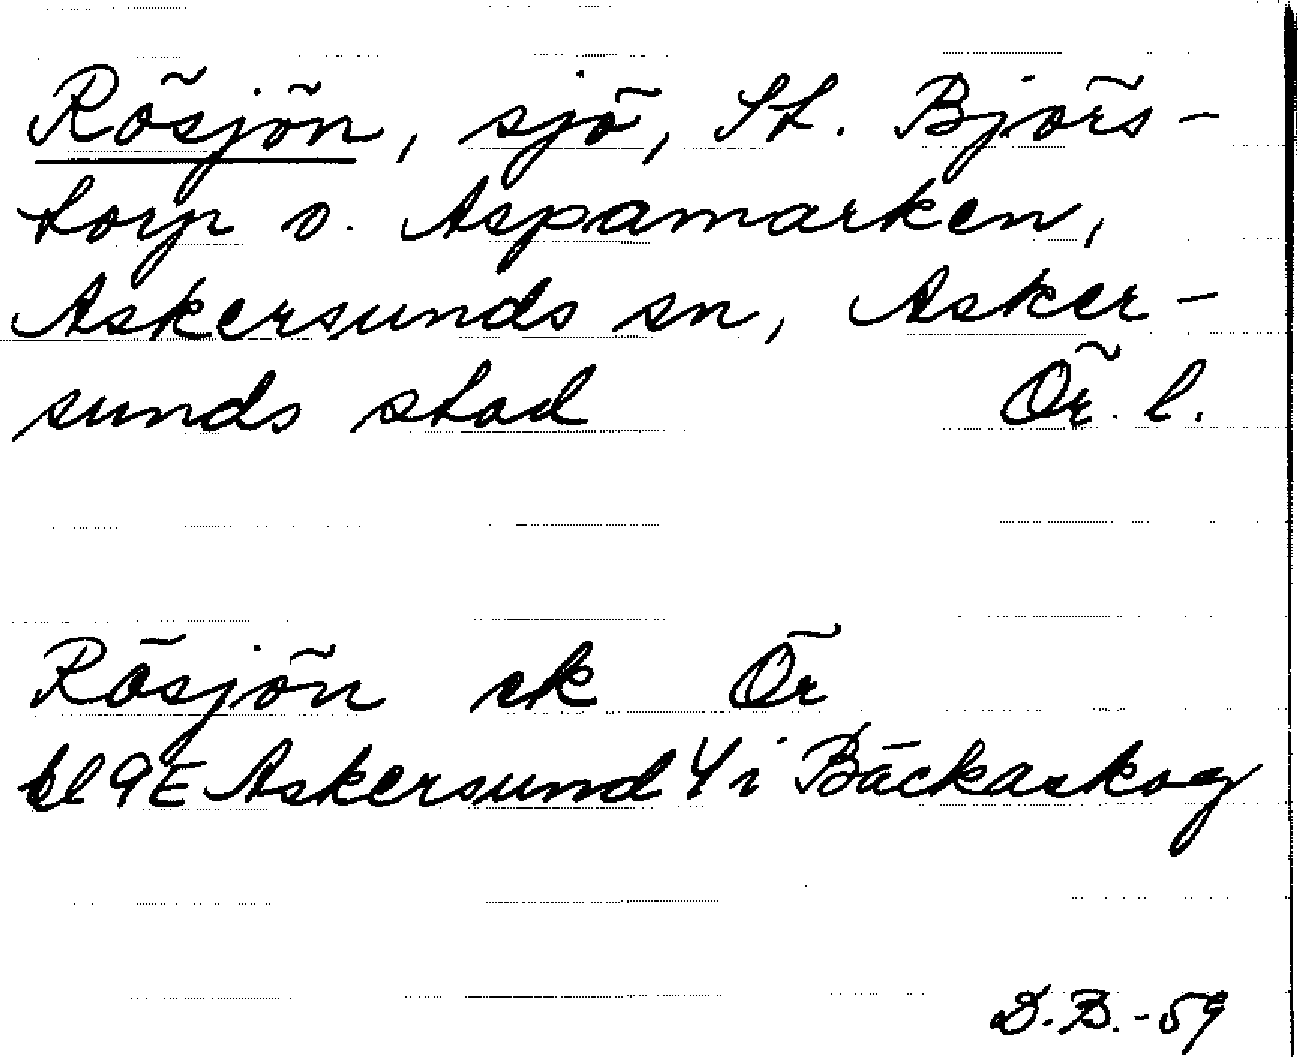 Rösjön, sjö, St. Björs-
torp o. Aspamarken,
Askersunds sn, Asker-
sunds stad Ör. l.
Rösjön ek Ör
bl 9E Askersund 4i Bäckaskog
D.B.-59